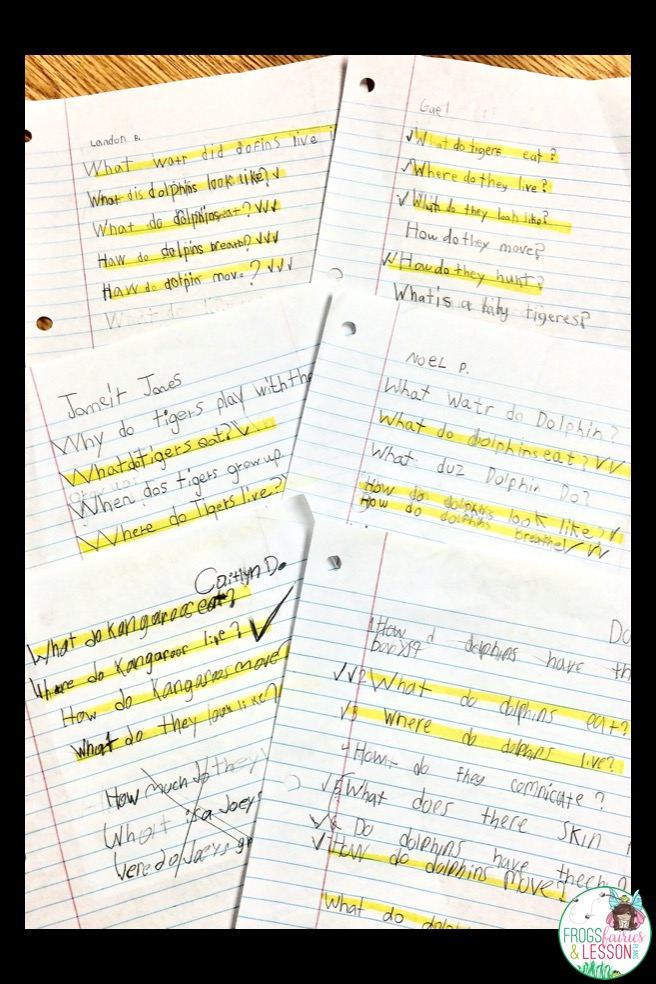 Landon B.
What watr did dofins live
What dis dolphins look like?
What do dolphins eat?
Haw do dolpins breath?
Haw do dolpin move?
What do
Gael
What do tigers eat?
Where do they live?
What do they look like?
How do they move?
How do they hunt?
What is a baby tigeres?
Jameir Jones
Why do tigers play with the
What do tigers eat?
When dos tigers grow up.
Where do Tigers live?
Noel P.
What watr do Dolphin?
What do dolphins eat?
What duz Dolphin Do?
How do dolphins look like?
How do dolphins breathe
Caitlyn D.
What do kangaroos eat?
Where do kangaroos live?
How do kangaroos move
What do they look like?
How much do they
What is a Joey
Were do Joeys
Do
1 How d dolphins have th
banys?
2 What do dolphins eat?
3 Where do dolphins live?
4 How do they comnicate?
5 What does there skin
6 Do dolphins have theeh?
How do dolphins move?
What do dolp
FROGS
fairies
& LESSON
PLANS